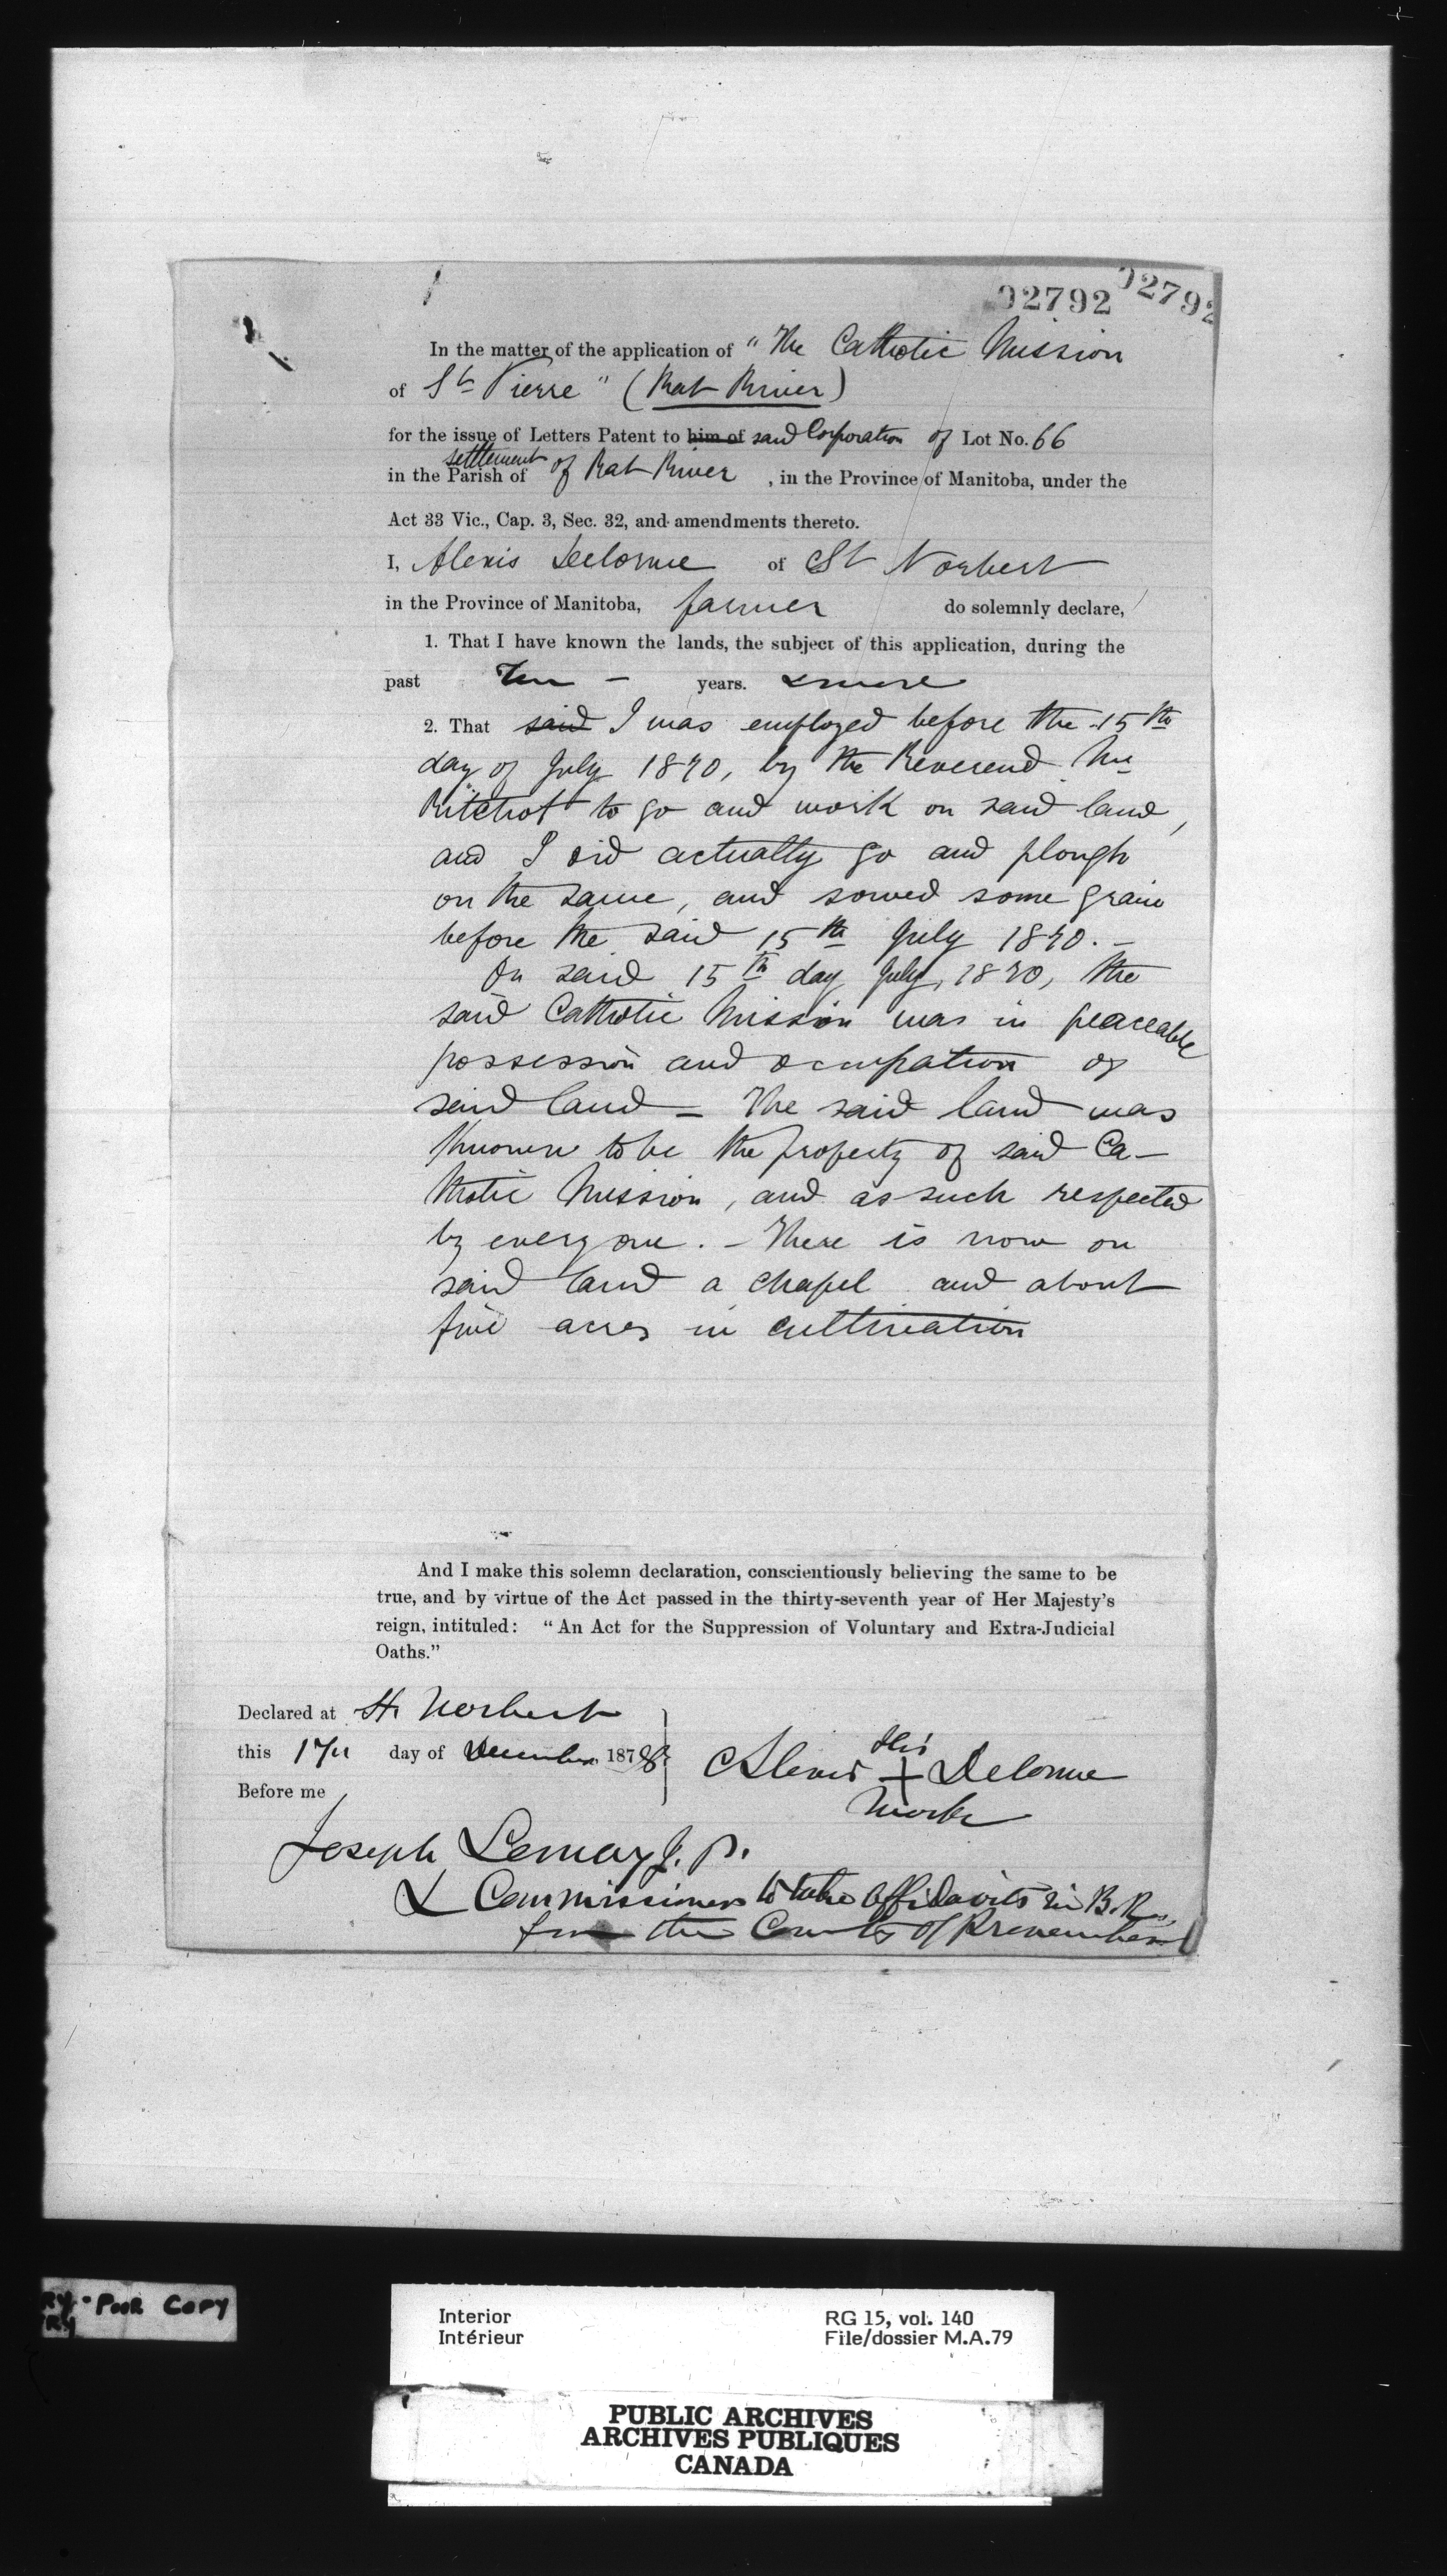 02792 02792
In the matter of the application of "The Catholic Mission
of St Pierre" (Rat River)
for the issue of Letters Patent to him of said Corporation of Lot No. 66
settlement
in the Parish of of Rat River, in the Province of Manitoba, under the
Act 33 Vic., Cap. 3, Sec. 32, and amendments thereto.
I, Alexis Delorme of St Norbert
in the Province of Manitoba, farmer do solemnly declare,
1. That I have known the lands, the subject of this application, during the
past Ten — years. & more
2. That said I was employed before the 15th
day of July 1870, by the Reverend Mr
Ritchot to go and work on said land,
and I did actually go and plough
on the same, and sowed some grain
before the said 15th July 1870. —
On said 15th day July, 1870, the
said Catholic Mission was in peaceable
possession and occupation of
said land — The said land was
known to be the property of said Ca-
tholic Mission, and as such respected
by everyone. — There is now on
said land a chapel and about
five acres in cultivation
And I make this solemn declaration, conscientiously believing the same to be
true, and by virtue of the Act passed in the thirty-seventh year of Her Majesty's
reign, intituled: "An Act for the Suppression of Voluntary and Extra-Judicial
Oaths."
Declared at St. Norbert
this 17th day of December 1878
Before me
his
Alexis + Delorme
mark
Joseph Lemay J. P.
& Commissioner to take affidavits in B.R.
for the County of Provencher
RY - POOR COPY
RY
Interior
Intérieur
RG 15, vol. 140
File/dossier M.A.79
PUBLIC ARCHIVES
ARCHIVES PUBLIQUES
CANADA